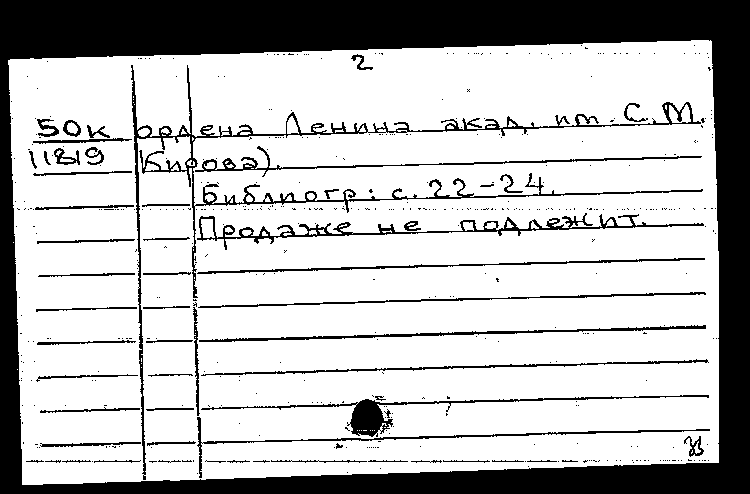 2
50к ордена Ленина акад. им. С.М.
11819 Кирова).
Библиогр: с. 22-24.
Продаже не подлежит.